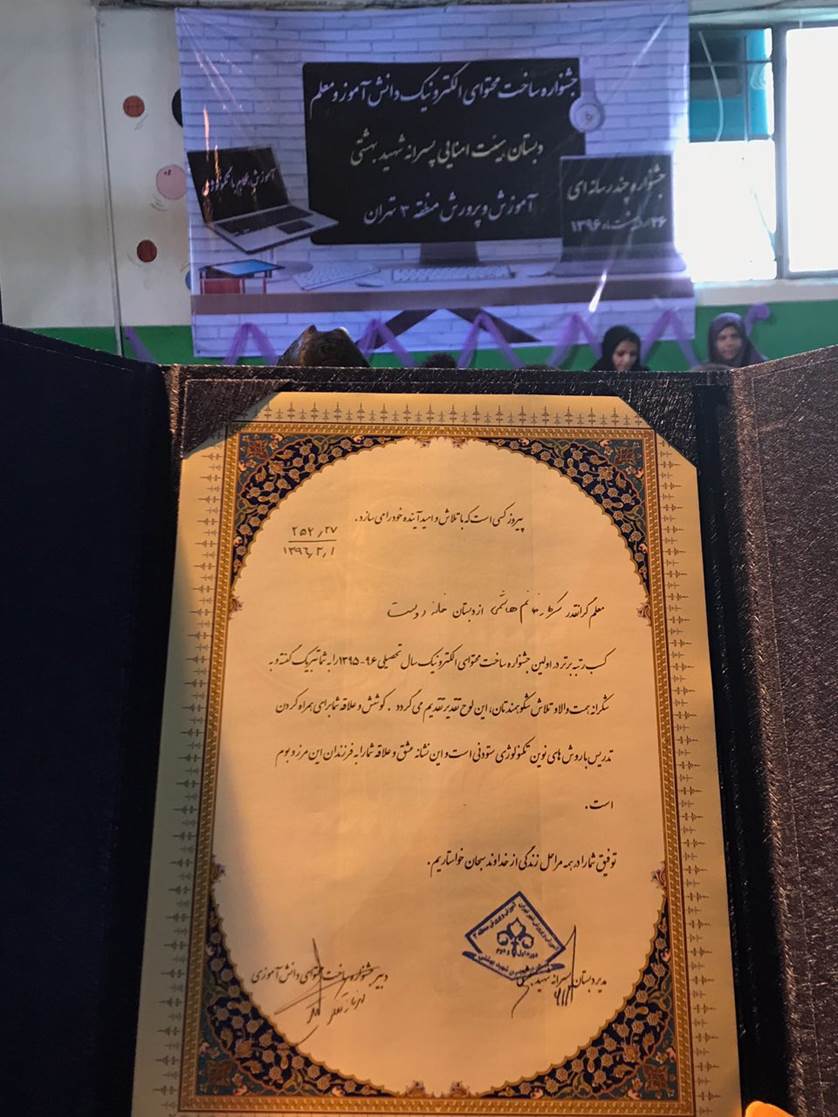 جشنواره ساخت محتوای الکترونیک دانش آموز و معلم
دبستان هیئت امنایی پسرانه شهید بهشتی
آموزش و پرورش منطقه ۳ تهران
جشنواره چند رسانه ای
پیروز کسی است که با تلاش و امید آینده خود را می سازد.
۲۵۲/۲۷
۱۳۹۶/۳/۱
معلم گرانقدر سرکار خانم هاشمی از دبستان
کسب رتبه برتر در اولین جشنواره ساخت محتوای الکترونیک سال تحصیلی ۹۶-۱۳۹۵ را به شما تبریک گفته و به
شکرانه همت والا و تلاش شکوهمندتان، این لوح تقدیر تقدیم می گردد. کوشش و علاقه شما برای همراه کردن
تدریس با روش های نوین تکنولوژی ستودنی است و این نشانه عشق و علاقه شما به فرزندان این مرز و بوم
است.
توفیق شما را در همه مراحل زندگی از خداوند سبحان خواستاریم.
مدیر دبستان پسرانه شهید بهشتی
دبیر جشنواره ساخت محتوای دانش آموزی